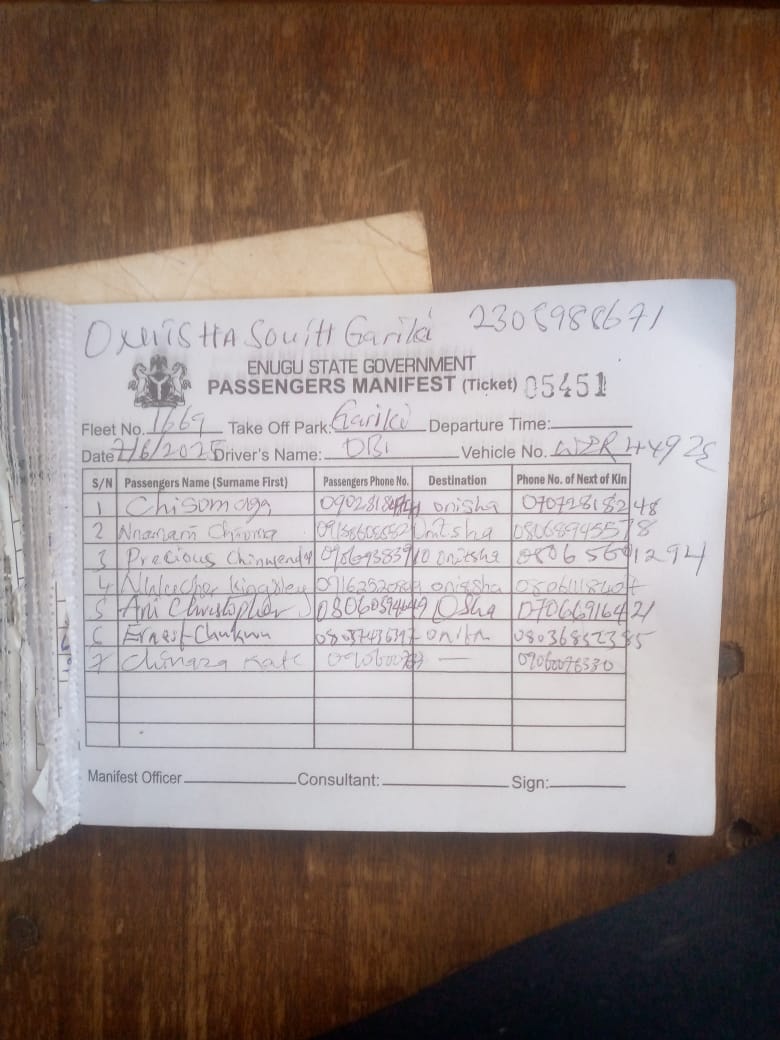 ONITSHA SOUTH Gariki 2305988671
ENUGU STATE GOVERNMENT
PASSENGERS MANIFEST (Ticket) 05451
Fleet No. 1669 Take Off Park: Gariki Departure Time:
Date 7/6/2025 Driver's Name: OBI Vehicle No.
S/N Passengers Name (Surname First) Passengers Phone No. Destination Phone No. of Next of Kin
1 Chisom onisha 07072818248
2 Nnamani Onitsha 08068945578
3 Precious onitsha 08065601294
4 Kingsley onissha
5 Ani Christopher Osha 07066916421
6 Ernest Chukwu 08037436397 08036852385
7 Chinaza Kate — 09060076330
Manifest Officer Consultant: Sign: